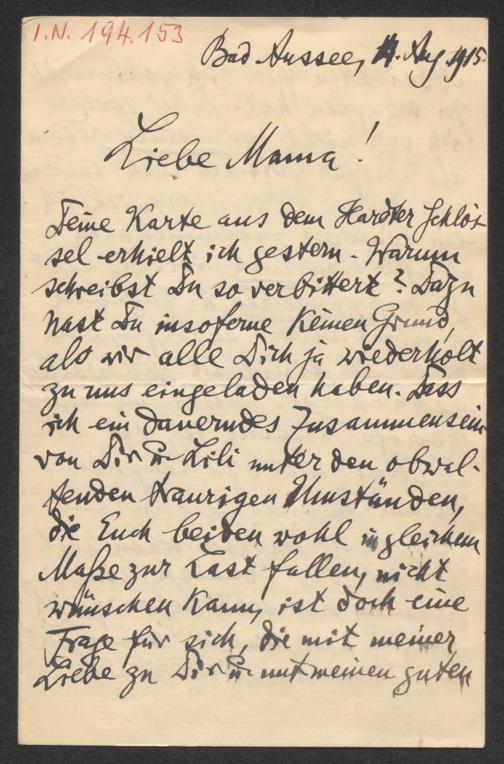 I.N. 194.153
Bad Aussee, 4. Aug 1915.
Liebe Mama!
Deine Karte aus dem Hardter Schlös-
sel erhielt ich gestern. Warum
schreibst Du so verbittert? Dazu
hast Du insoferne keinen Grund,
als wir alle Dich ja wiederholt
zu uns eingeladen haben. Dass
ich ein dauerndes Zusammensein
von Dir u. Lili unter den obwal-
tenden traurigen Umständen,
die Euch beiden wohl in gleichem
Maße zur Last fallen, nicht
wünschen kann, ist doch eine
Frage für sich, die mit meiner
Liebe zu Dir u. mit meinen guten